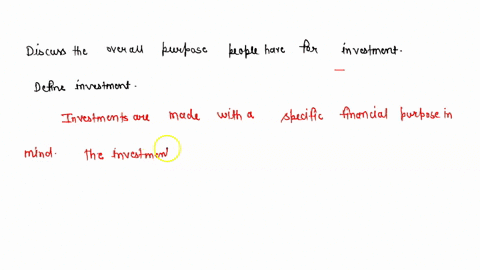 Discuss the overall purpose people have for investment.
Define investment.
Investments are made with a specific financial purpose in
mind. The investment